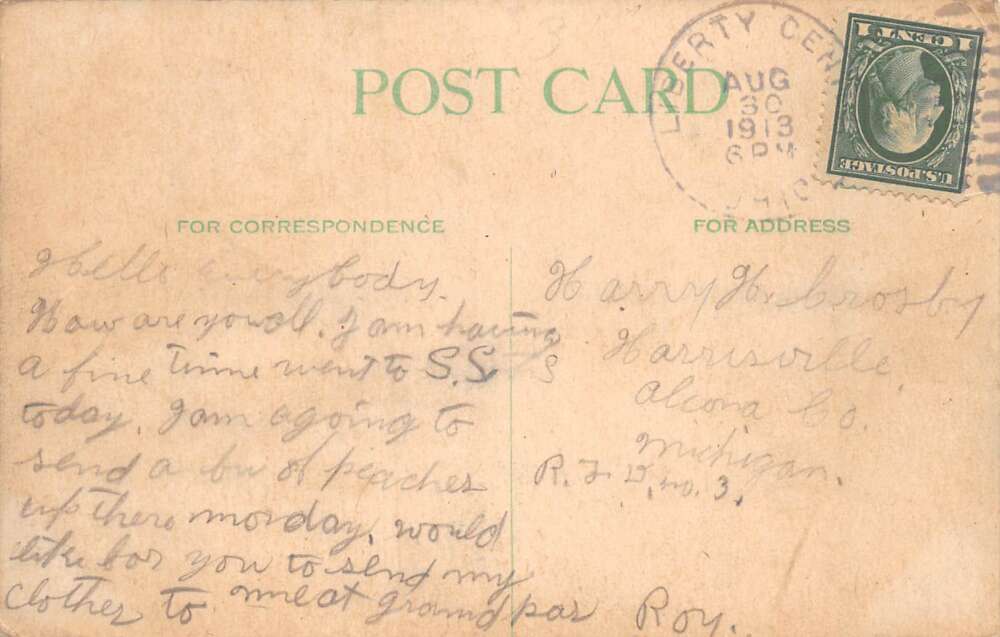 POST CARD
LIBERTY CEN
AUG
30
1913
6 PM
OHIO
1 CENT 1
U.S. POSTAGE
FOR CORRESPONDENCE
Hello everybody.
How are you all. I am having
a fine time went to S.S.
today. I am agoing to
send a bu of peaches
up there monday, would
like for you to send my
clothes to me at grand pas Roy.
FOR ADDRESS
Harry H. Crosby
Harrisville,
Alcona Co.
Michigan.
R. F. D. no. 3.